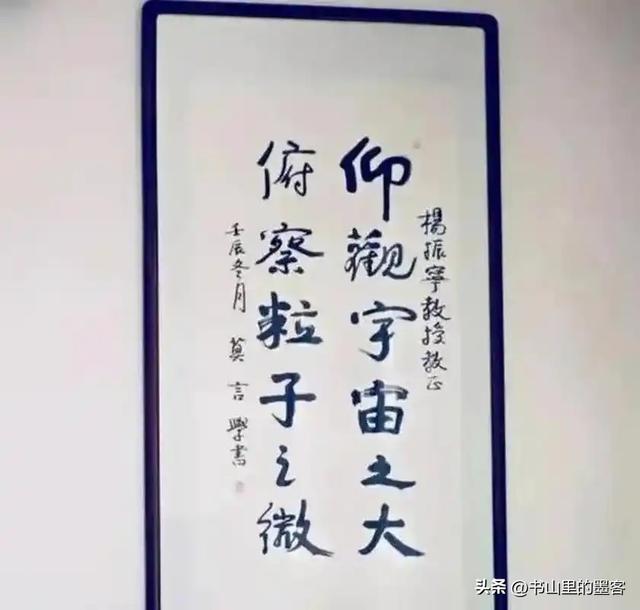 楊振寧教授教正
仰觀宇宙之大
俯察粒子之微
壬辰冬月 莫言學書
头条 @书山里的墨客